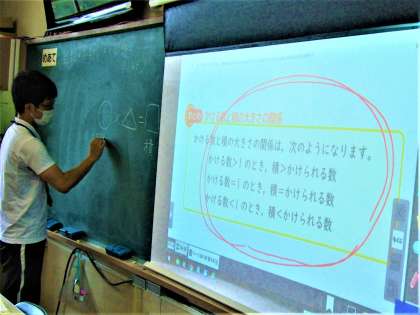 めあて
○×△=□
積
かける数と積の大きさの関係
かける数と積の大きさの関係は、次のようになります。
かける数>1のとき、積>かけられる数
かける数=1のとき、積=かけられる数
かける数<1のとき、積<かけられる数